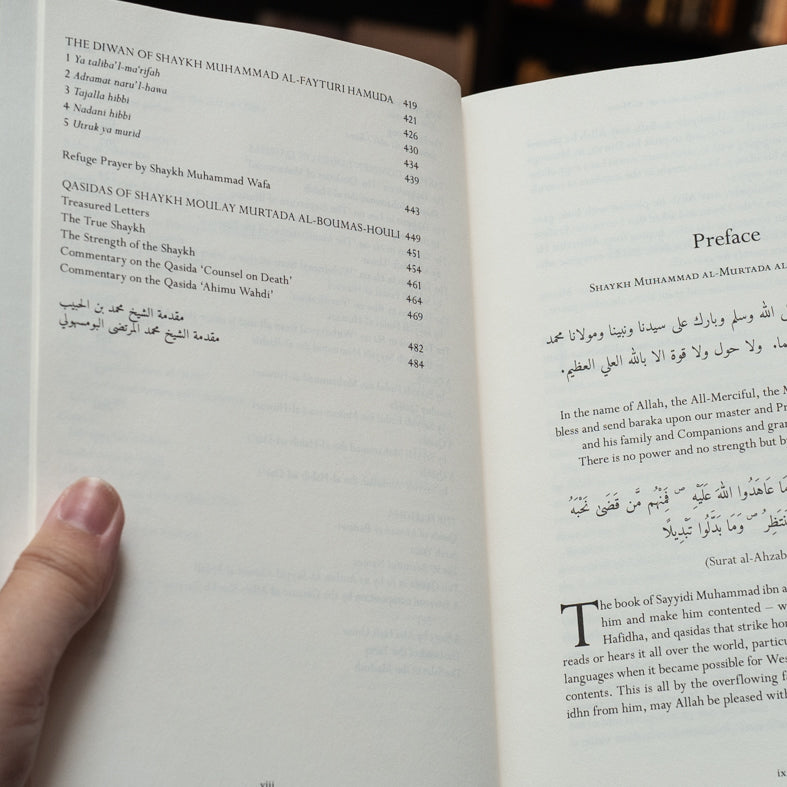 THE DIWAN OF SHAYKH MUHAMMAD AL-FAYTURI HAMUDA 419
1 Ya taliba'l-ma'rifah 421
2 Adramat naru'l-hawa 426
3 Tajalla hibbi 430
4 Nadani hibbi 434
5 Utruk ya murid 439
Refuge Prayer by Shaykh Muhammad Wafa 443
QASIDAS OF SHAYKH MOULAY MURTADA AL-BOUMAS-HOULI 449
Treasured Letters 451
The True Shaykh 454
The Strength of the Shaykh 461
Commentary on the Qasida ‘Counsel on Death’ 464
Commentary on the Qasida ‘Ahimu Wahdi’ 469
مقدمة الشيخ محمد بن الحبيب 482
مقدمة الشيخ محمد المرتضى البومسهولي 484
viii
Preface
SHAYKH MUHAMMAD AL-MURTADA AL
الله وسلم وبارك على سيدنا ونبينا ومولانا محمد
ولا حول ولا قوة الا بالله العلي العظيم.
In the name of Allah, the All-Merciful, the
bless and send baraka upon our master and
and his family and Companions and
There is no power and no strength but
عَاهَدُوا اللهَ عَلَيْهِ ۖ فَمِنْهُم مَّن قَضَىٰ نَحْبَهُ
ۖ وَمَا بَدَّلُوا تَبْدِيلًا
(Surat al-Ahzab
The book of Sayyidi Muhammad ibn
him and make him contented –
Hafidha, and qasidas that strike
reads or hears it all over the world,
languages when it became possible for
contents. This is all by the overflowing
idhn from him, may Allah be pleased
ix